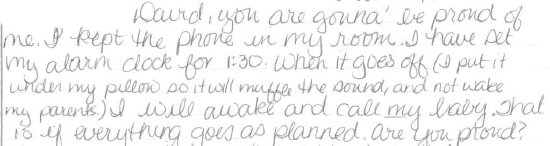 David, you are gonna' be proud of
me. I kept the phone in my room. I have set
my alarm clock for 1:30. When it goes off (I put it
under my pillow so it will muffle the sound, and not wake
my parents.) I will awake and call my baby. That
is if everything goes as planned. Are you proud?